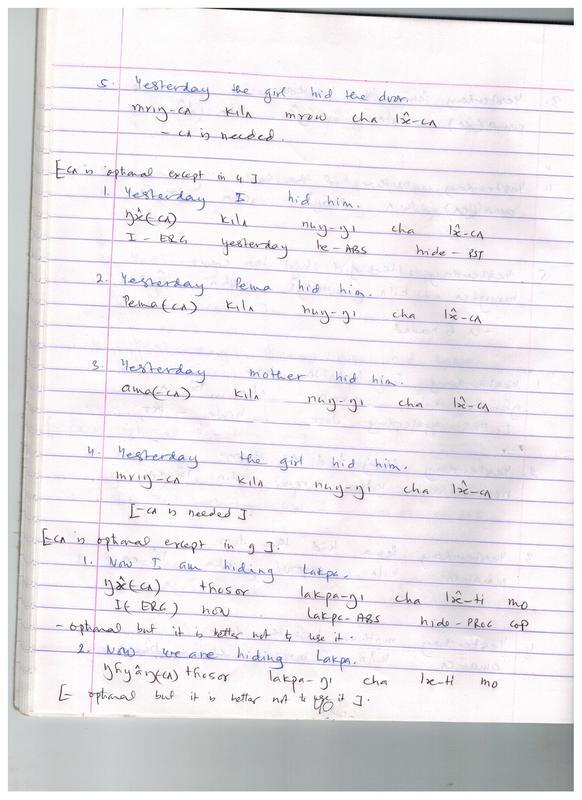 5. Yesterday the girl hid the door.
mrıŋ-cʌ kilʌ mrow cha lx̂-cʌ
- cʌ is needed.
[-cʌ is optional except in 4]
1. Yesterday I hid him.
ŋx̂(-cʌ) kilʌ nuŋ-ŋı cha lx̂-cʌ
I-ERG yesterday he-ABS hide-PST
2. Yesterday Pema hid him.
Pema(-cʌ) kilʌ nuŋ-ŋı cha lx̂-cʌ
3. Yesterday mother hid him.
ama(-cʌ) kilʌ nuŋ-ŋı cha lx̂-cʌ
4. Yesterday the girl hid him.
mrıŋ-cʌ kilʌ nuŋ-ŋı cha lx̂-cʌ
[-cʌ is needed].
[-cʌ is optional except in 9].
1. Now I am hiding Lakpa.
ŋx̂(-cʌ) thosor lakpa-ŋı cha lx̂-ti mo
I(ERG) now lakpa-ABS hide-PROG COP
- optional but it is better not to use it.
2. Now we are hiding Lakpa.
ŋhyâŋ(-cʌ) thosor lakpa-ŋı cha lx-ti mo
[- optional but it is better not to use it].